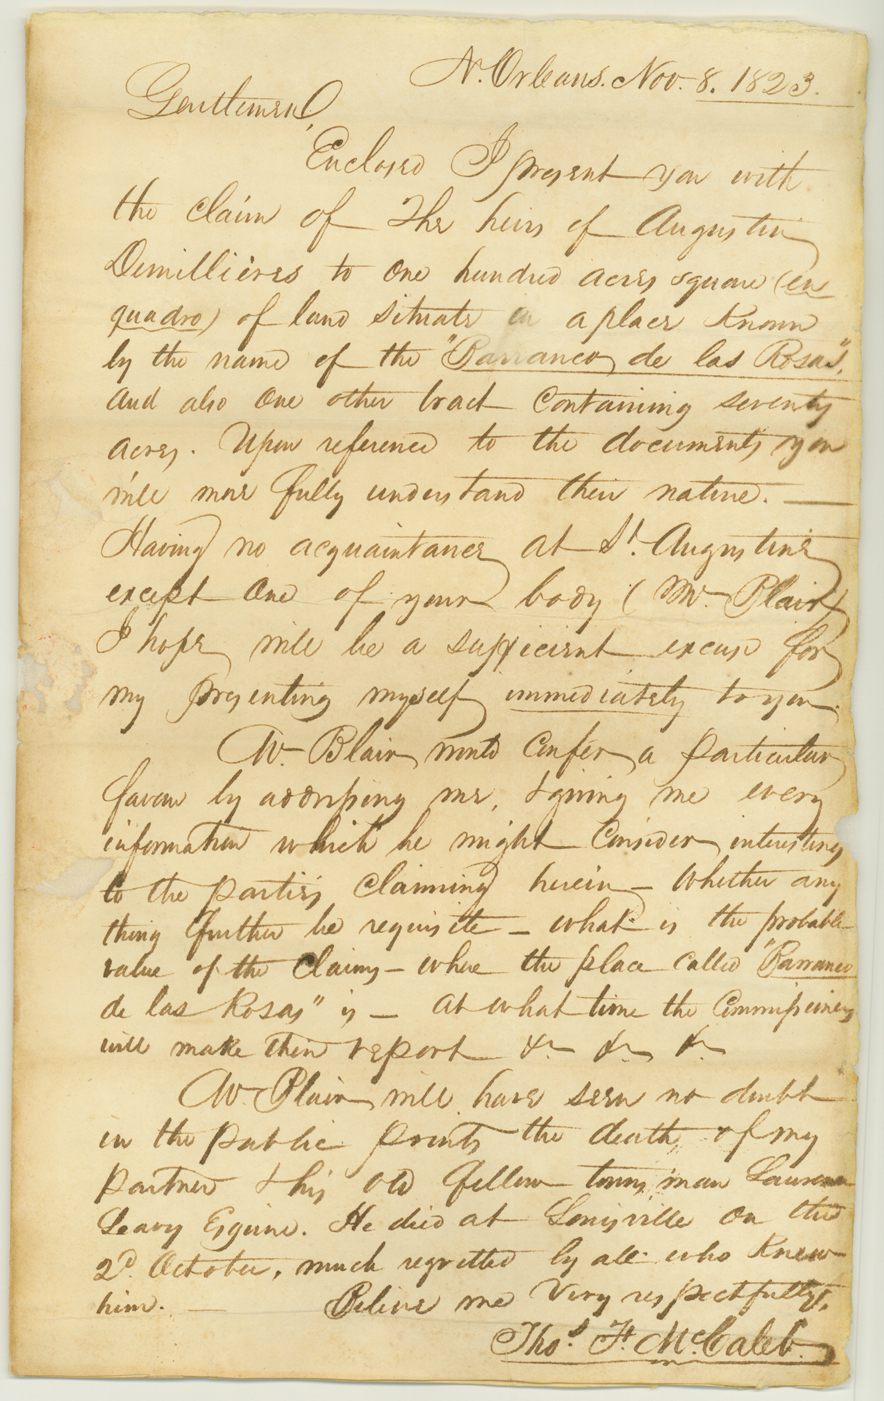 N. Orleans. Nov. 8. 1823.
Gentlemen,
Enclosed I present you with
the claim of The heirs of Augustin
Demillieres to One hundred acres square (en
quadro) of land situate in a place Known
by the name of the "Barranco de las Rosas",
And also One other tract Containing seventy
acres. Upon reference to the documents you
will more fully understand their nature. —
Having no acquaintance at St. Augustine
except One of your body (Mr. Blair)
I hope will be a sufficient excuse for
my presenting myself immediately to you.
Mr. Blair would Confer a particular
favour by addressing me, & giving me every
information which he might Consider interesting
to the parties Claiming herein — Whether any
thing further be requisite — what is the probable
value of the Claims — where the place called "Barranco
de las Rosas" is — At what time the Commissioners
will make their report &c &c &c
Mr Blair will have seen no doubt
in the public prints the death of my
partner & his old fellow towns man Laurence
Leavy Esquire. He died at Louisville On the
2d. October, much regretted by all who Knew
him. — Believe me Very respectfully,
Thos. F. McCaleb.